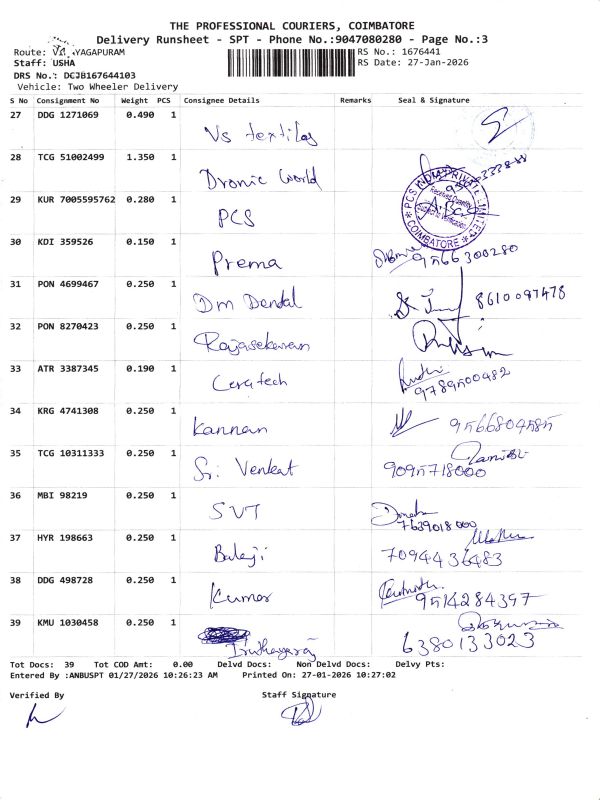 THE PROFESSIONAL COURIERS, COIMBATORE
Delivery Runsheet - SPT - Phone No.:9047080280 - Page No.:3
Route: YAGAPURAM
RS No.: 1676441
Staff: USHA
RS Date: 27-Jan-2026
DRS No.: DCJB167644103
Vehicle: Two Wheeler Delivery
S No Consignment No Weight PCS Consignee Details Remarks Seal & Signature
27 DDG 1271069 0.490 1 Vs textiles
28 TCG 51002499 1.350 1 Dronic World
29 KUR 7005595762 0.280 1 PCS PCS INDIA PRIVATE LIMITED COIMBATORE
30 KDI 359526 0.150 1 Prema 9566300280
31 PON 4699467 0.250 1 Dm Dental 8610097478
32 PON 8270423 0.250 1 Rajasekaran
33 ATR 3387345 0.190 1 Ceratech 9789500482
34 KRG 4741308 0.250 1 Kannan 9566804585
35 TCG 10311333 0.250 1 Sri Venkat 9095718000
36 MBI 98219 0.250 1 SVT 7639018000
37 HYR 198663 0.250 1 Balaji 7094436483
38 DDG 498728 0.250 1 Kumar 9514284397
39 KMU 1030458 0.250 1 Iruthayaraj 6380133023
Tot Docs: 39 Tot COD Amt: 0.00 Delvd Docs: Non Delvd Docs: Delvy Pts:
Entered By :ANBUSPT 01/27/2026 10:26:23 AM Printed On: 27-01-2026 10:27:02
Verified By Staff Signature